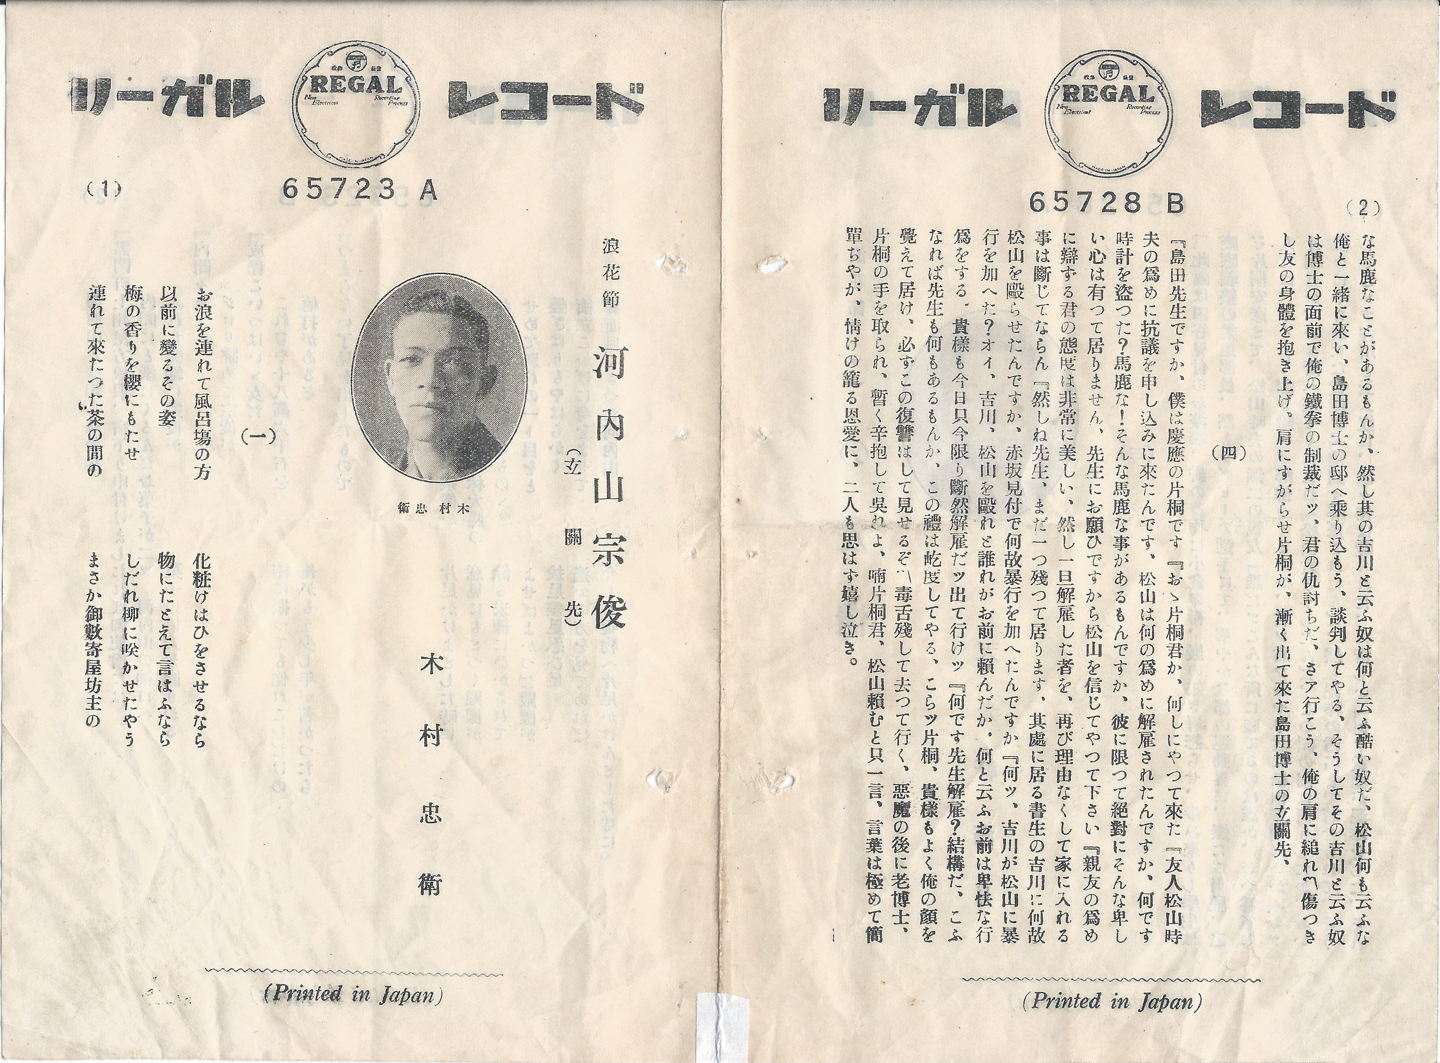 リーガル
REGAL
New Electrical
Recording Process
レコード
65728 B
(2)
な馬鹿なことがあるもんか、然し其の吉川と云ふ奴は何と云ふ酷い奴だ、松山何も云ふな
俺と一緒に來い、島田博士の邸へ乘り込もう、談判してやる、そうしてその吉川と云ふ奴
は博士の面前で俺の鐵拳の制裁だッ、君の仇討ちだ、さア行こう、俺の肩に縋れ〽傷つき
し友の身體を抱き上げ、肩にすがらせ片桐が、漸く出て來た島田博士の立關先、
(四)
『島田先生ですか、僕は慶應の片桐です『おゝ片桐君か、何しにやつて來た『友人松山時
夫の爲めに抗議を申し込みに來たんです、松山は何の爲めに解雇されたんですか、何です
時計を盗つた？馬鹿な！そんな馬鹿な事があるもんですか、彼に限つて絶對にそんな卑し
い心は有つて居りません、先生にお願ひですから松山を信じてやつて下さい『親友の爲め
に辯する君の態度は非常に美しい、然し一旦解雇した者を、再び理由なくして家に入れる
事は斷じてならん『然しね先生、まだ一つ殘つて居ります、其處に居る書生の吉川に何故
松山を毆らせたんですか、赤坂見付で何故暴行を加へたんですか『何ッ、吉川が松山に暴
行を加へた？オイ、吉川、松山を毆れと誰れがお前に頼んだか、何と云ふお前は卑怯な行
爲をする、貴樣も今日只今限り斷然解雇だッ出て行けッ『何です先生解雇？結構だ、こふ
なれば先生も何もあるもんか、この禮は屹度してやる、こらッ片桐、貴樣もよく俺の顔を
覺えて居け、必ずこの復讐はして見せるぞ〽毒舌殘して去つて行く、惡魔の後に老博士、
片桐の手を取られ、暫く辛抱して呉れよ、喃片桐君、松山頼むと只一言、言葉は極めて簡
單ぢやが、情けの籠る恩愛に、二人も思はず嬉し泣き。
(Printed in Japan)
リーガル
REGAL
New Electrical
Recording Process
レコード
65723 A
(1)
浪花節
河內山宗俊
(立關先)
木村忠衛
木村忠衛
(一)
お浪を連れて風呂場の方
化粧けはひをさせるなら
以前に變るその姿
物にたとえて言はふなら
梅の香りを櫻にもたせ
しだれ柳に咲かせたやう
連れて來たつた茶の間の
まさか御數寄屋坊主の
(Printed in Japan)